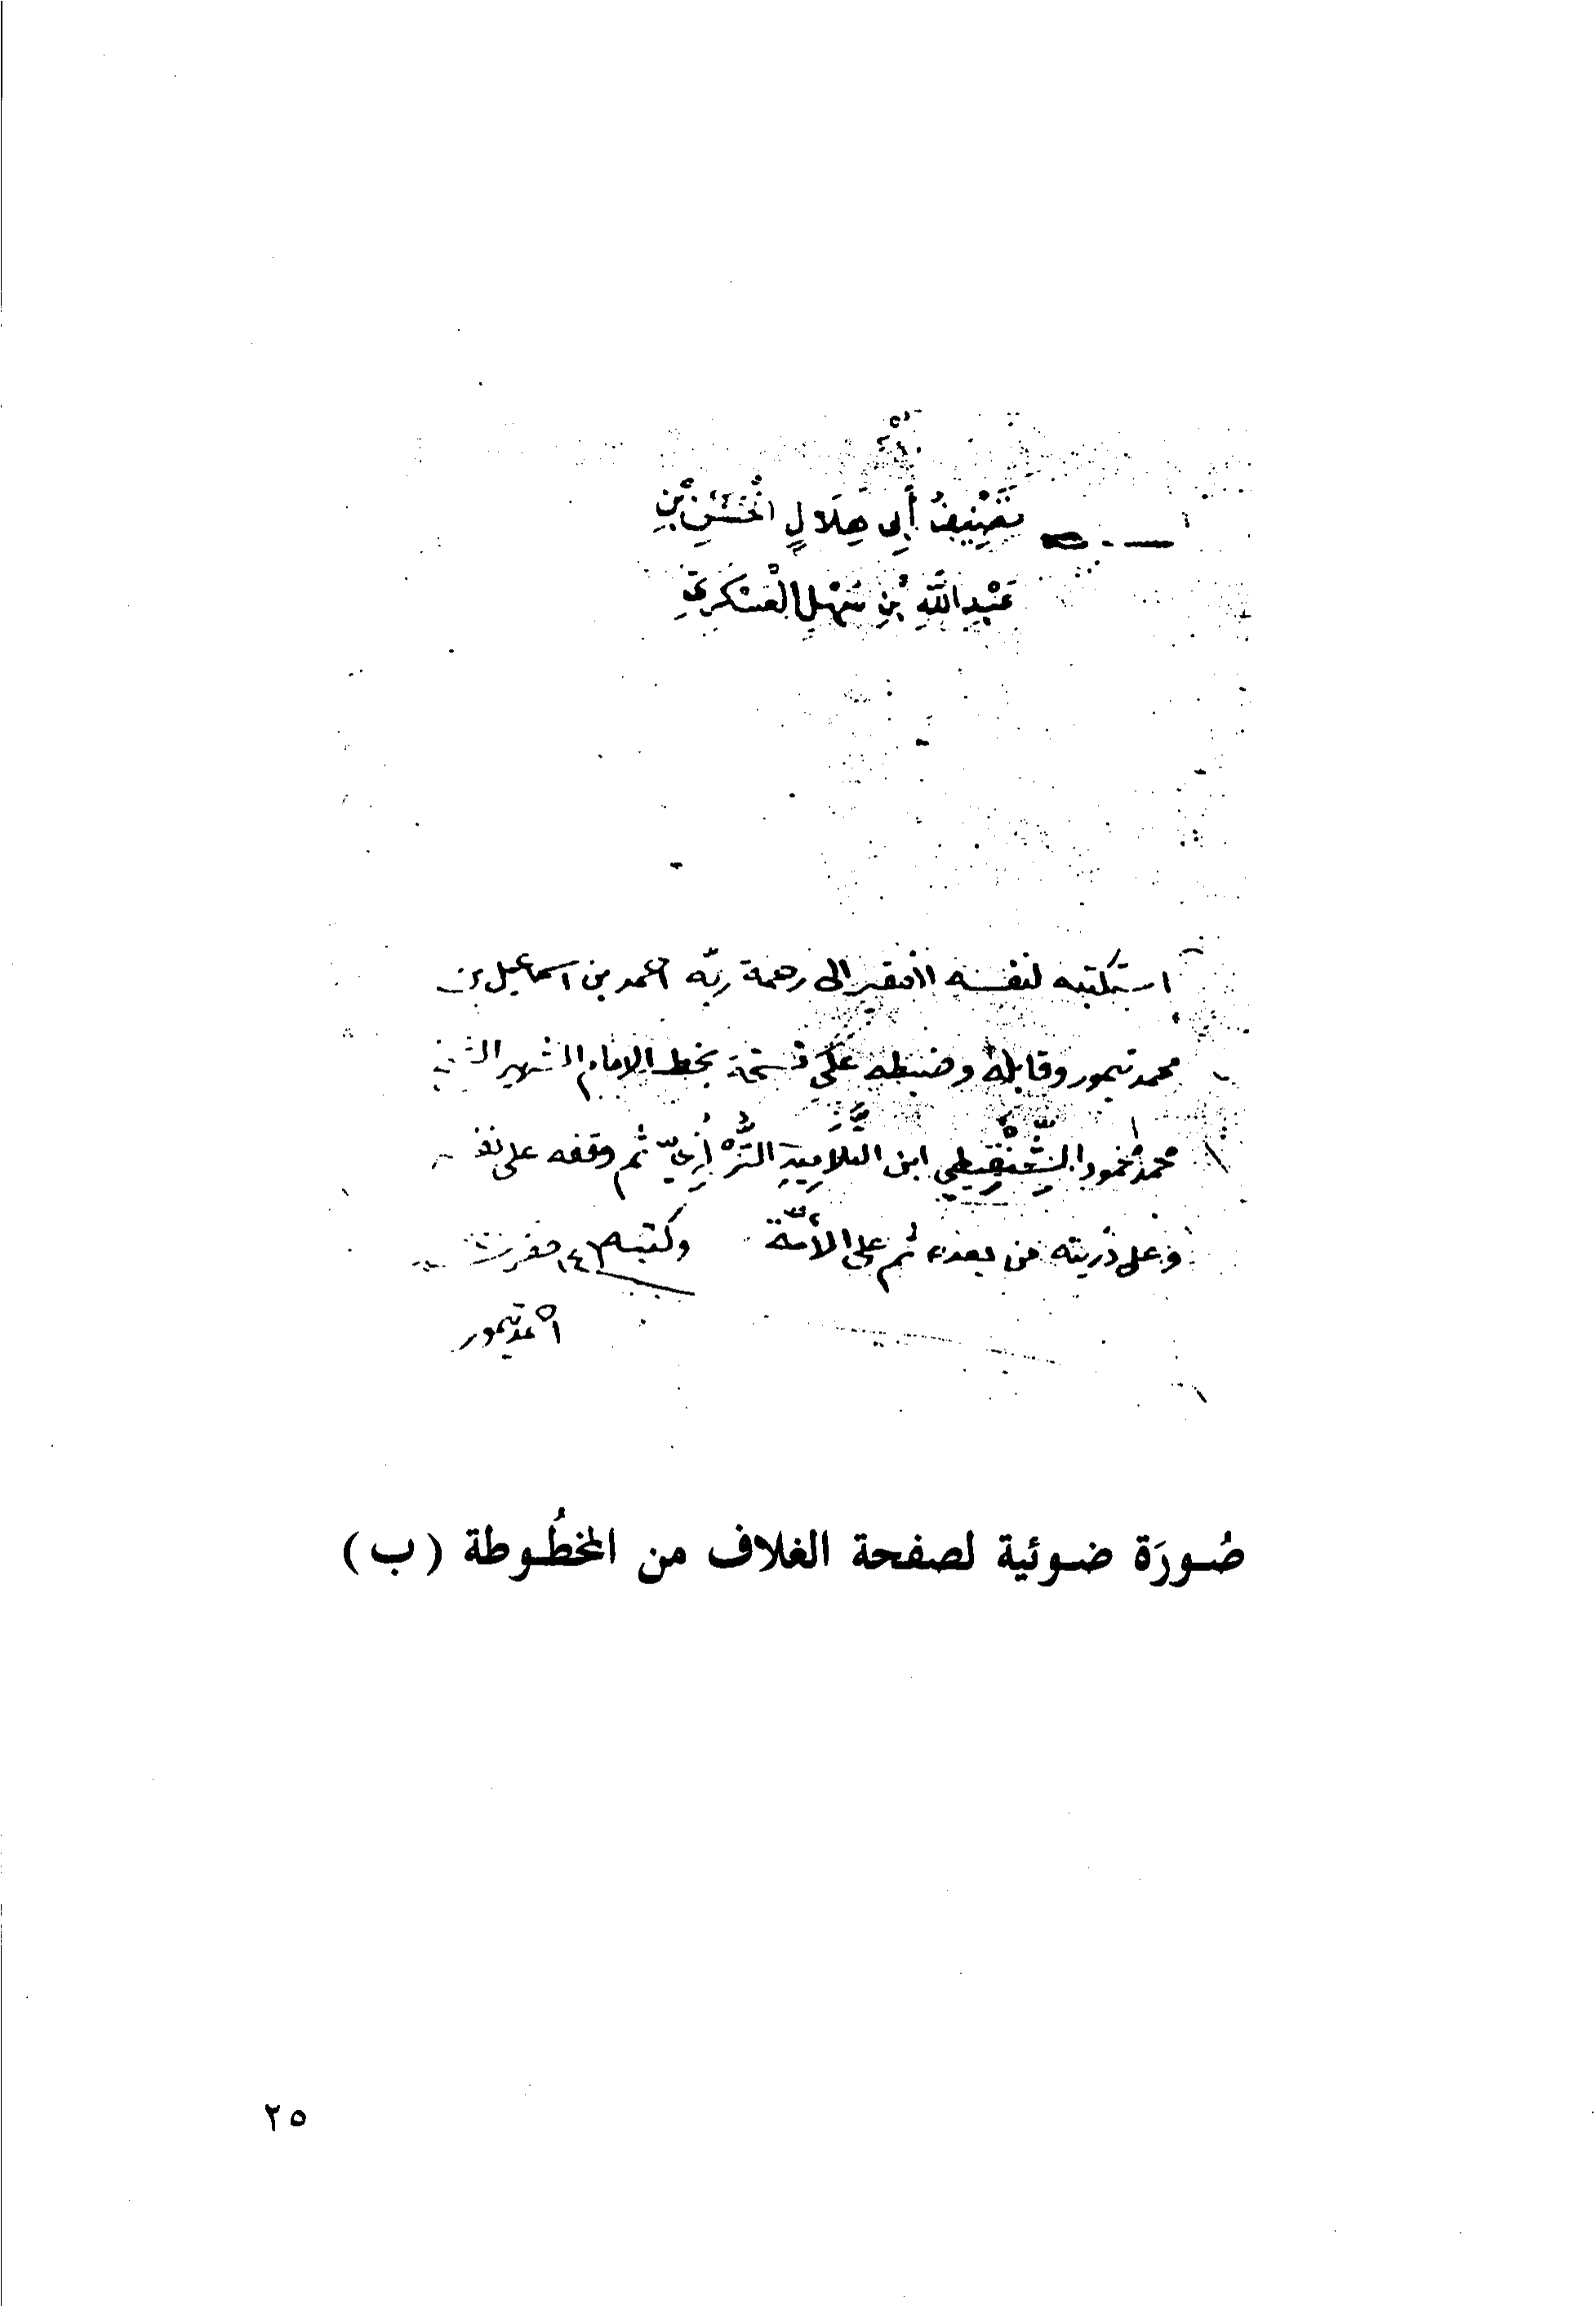 تَصْنِيفُ أَبِي هِلَالٍ الْحَسَنِ بْنِ
عَبْدِ اللَّهِ بْنِ سَهْلٍ الْعَسْكَرِيِّ
استكتبه لنفسه الفقير الى رحمة ربّه احمد بن اسماعيل بن
محمد تيمور وقابله وضبطه على نسخة بخط الامام الشهير
محمد محمود الشِّنْقِيطِي ابن التلاميد التُّرْكُزِيّ ثم وقفه على
وعلى ذريته من بعده ثم على الأمّة وكتبه ١٤ صفر
احمد تيمور
صُورَة ضوئية لصفحة الغلاف من المخطُوطة (ب)
٢٥